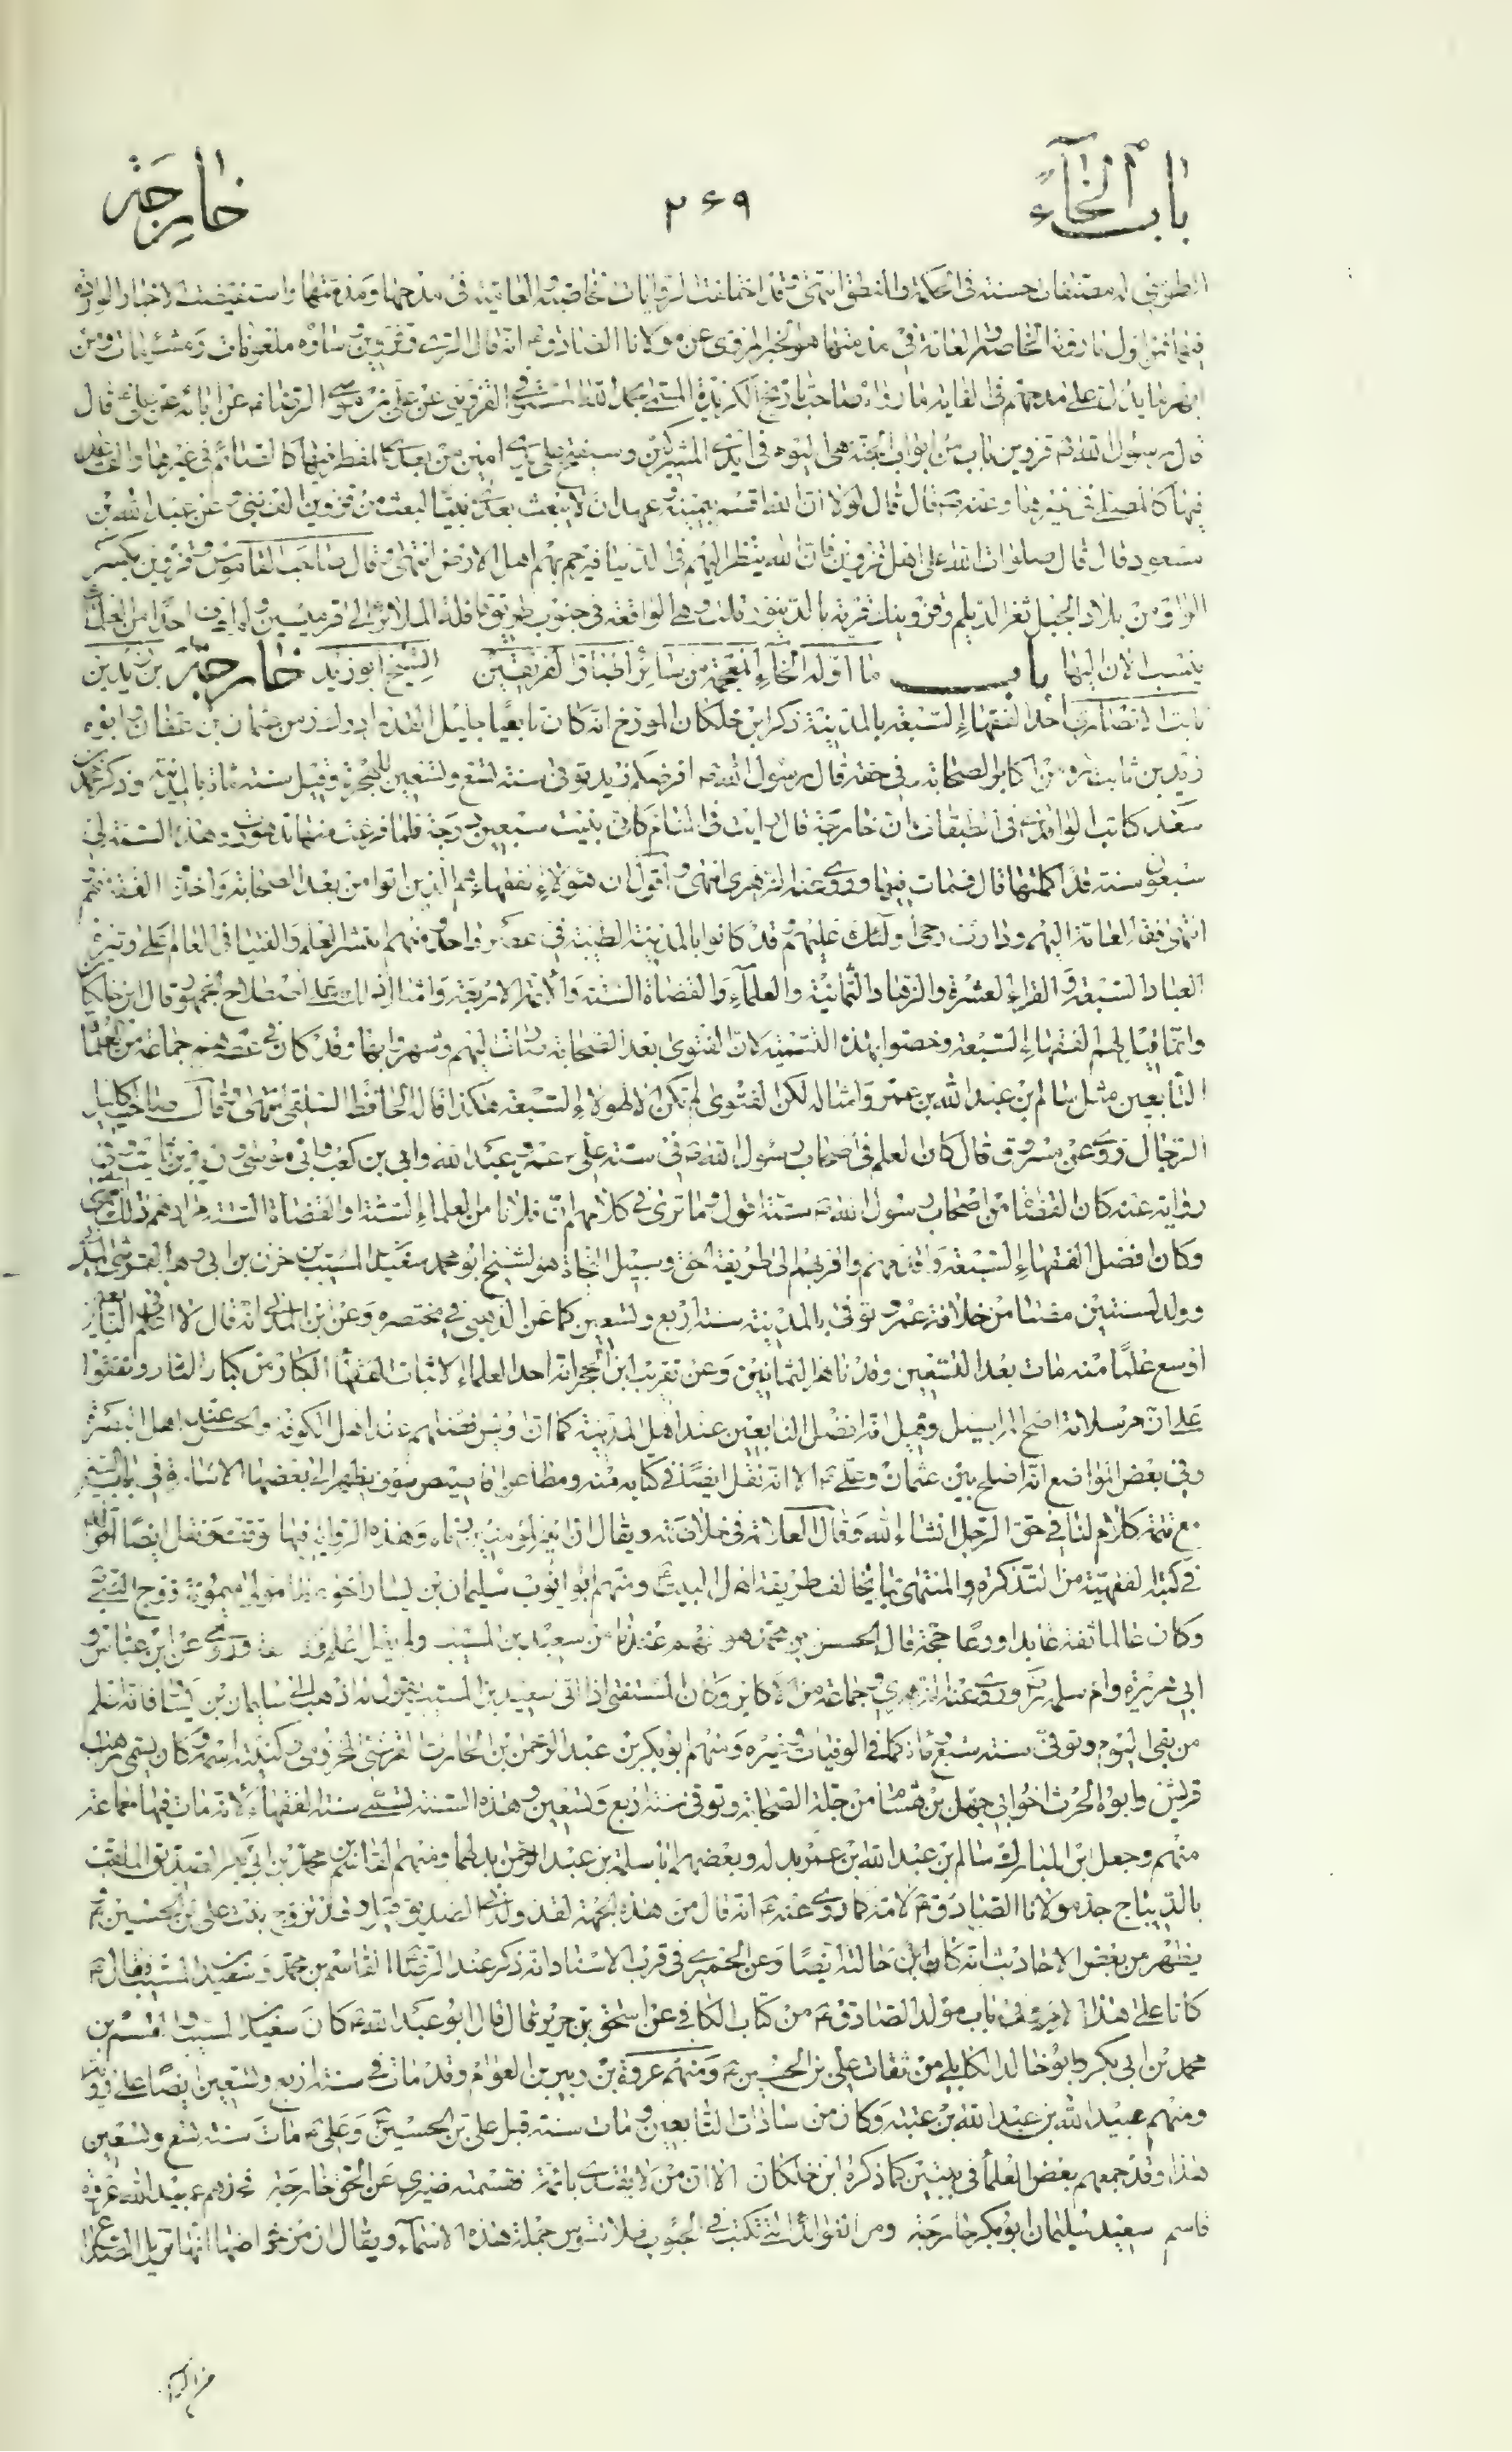 باب الخاء ۲۶۹ خارجة
الطوسي له مصنفات حسنة في الحكمة والمنطق انتهى وقد اختلفت الروايات خاصية والعامية في مدحها ومذمتها واستفيضت الاخبار الواردة
فيهما ثم اول ما روته الخاصة والعامة في مذمتها هو الخبر المروي عن مولانا الصادق ع انه قال الري وقزوين وساوه ملعونات ومشئومات ومن
ما يدل على مدحهم في الغاية ما رواه صاحب تاريخ الكزيدة المسمى بحمد الله المستوفي القزويني عن علي بن موسى الرضا ع عن ابائه عن علي ع قال
قال رسول الله ص قزوين باب من ابواب الجنة هي اليوم في ايدي المشركين وسيفتح على يدي امتي من بعدي المفطر فيها كالصائم في غيرها والقاعد
فيها كالمصلي في غيرها وعنه ص قال قال لولا ان الله اقسم بيمينه وعهد ان لا يبعث بعدي نبيا لبعث من قزوين الف نبي وعن عبد الله بن
مسعود قال قال صلوات الله على اهل قزوين فان الله ينظر اليهم في الدنيا فيرحم بهم اهل الارض انتهى وقال صاحب القاموس وقزوين بكسر
الواو من بلاد الجبل ثغر الديلم وقزوينك قرية بالدينور قلت وهي الواقعة في جنوب طريق قافلة الى قرميسين ولم اعرف احدا من العلماء
ينسب الان اليها باب ما اوله الخاء المعجمة من سائر اطباق الفريقين الشيخ ابو زيد خارجة بن زيد بن
ثابت الانصاري احد الفقهاء السبعة بالمدينة ذكر ابن خلكان المورخ انه كان تابعيا جليل القدر ادرك زمن عثمان بن عفان وابوه
زيد بن ثابت من اكابر الصحابة وفي حقه قال رسول الله ص افرضكم زيد توفى سنة تسع وتسعين للهجرة وقيل سنة مائة بالمدينة وذكر محمد بن
سعد كاتب الواقدي في الطبقات ان خارجة قال رايت في المنام كاني بنيت سبعين درجة فلما فرغت منها تدهورت وهذه السنة لي
سبعون سنة قد اكملتها قال فمات فيها وروى عنه الزهري انتهى واقول ان هؤلاء الفقهاء هم الذين اتوا من بعد الصحابة واخذ الفقه عنهم
انتهى فقه العامة اليهم ودارت رحى اولئك عليهم وقد كانوا بالمدينة الطيبة في عصر واحد ومنهم انتشر العلم والفتيا في العالم على وتيرة
العباد السبعة والقراء العشرة والزهاد الثمانية والعلماء والقضاة الستة والائمة الاربعة وامثال ذلك على اصطلاح الجمهور قال ابن خلكان
وانما قيل لهم الفقهاء السبعة وخصوا بهذه التسمية لان الفتوى بعد الصحابة صارت اليهم وشهروا بها وقد كان في عصرهم جماعة من العلماء
التابعين مثل سالم بن عبد الله بن عمر وامثاله لكن الفتوى لم تكن الا لهولاء السبعة هكذا قاله الحافظ السلفي انتهى وقال صاحب كامل
الرجال روى عن مسروق قال كان العلم في اصحاب رسول الله ص في ستة علي وعمر وعبد الله وابي بن كعب وابي موسى وزيد بن ثابت وفي
رواية عنه كان القضاء من اصحاب رسول الله ص ستة اقول وما ترى في كلامهم ان فلانا من العلماء الستة او القضاة الستة مرادهم ذلك
وكان افضل الفقهاء السبعة وافقههم واقربهم الى طريقة الحق وسبيل النجاة هو الشيخ ابو محمد سعيد بن المسيب بن حزن بن ابي وهب القرشي
وولد لسنتين مضتا من خلافة عمر وتوفى بالمدينة سنة اربع وتسعين كما عن الذهبي في مختصره وعن ابن المديني انه قال لا اعلم في التابعين
اوسع علما منه مات بعد التسعين وقد ناهز الثمانين وعن تقريب ابن حجر انه احد العلماء الاثبات الفقهاء الكبار من كبار الثانية واتفقوا
على ان مرسلاته اصح المراسيل وقيل انه افضل التابعين عند اهل المدينة كما ان اويس افضلهم عند اهل الكوفة والحسن عند اهل البصرة
وفي بعض المواضع انه اصلح بين عثمان وعلي ع الا انه نقل ايضا في كتابه عنه ومطاعن سوف يظهر لك بعضها الاشارة في
مع تتمة كلام لنا في حق الرجل انشاء الله وقال العلامة في خلاصته ويقال ان امير المؤمنين رباه وهذه الرواية فيها توقف ونقل ايضا
في كتبه الفقهية من التذكرة والمنتهى ما يخالف طريقة اهل البيت ع ومنهم ابو ايوب سليمان بن يسار اخو عطا مولى ميمونة زوج النبي
وكان عالما ثقة عابدا ورعا حجة قال الحسن بن محمد هو افهم عندنا من سعيد بن المسيب ولم يقل اعلم وروى عن ابن عباس و
ابي هريرة وام سلمة وروى عنه الزهري وجماعة من الاكابر وكان المستفتي اذا اتى سعيد بن المسيب يقول له اذهب الى سليمان بن يسار فانه اعلم
من بقي اليوم وتوفى سنة سبع ومائة كما في الوفيات وغيره ومنهم ابو بكر بن عبد الرحمن بن الحارث القرشي المخزومي وكنيته اسمه وكان يسمى راهب
قريش وابوه الحرث اخو ابي جهل بن هشام من جلة الصحابة وتوفى سنة اربع وتسعين وهذه السنة تسمى سنة الفقهاء لانه مات فيها جماعة
منهم وجعل ابن المبارك سالم بن عبد الله بن عمر بدله وبعضهم ابا سلمة بن عبد الرحمن بدلهما ومنهم القاسم بن محمد بن ابي بكر الصديق الملقب
بالديباج جد مولانا الصادق ع لامه كما روى عنه ع انه قال من هذه الجهة لقد ولدني الصديق مرتين وقد تزوج بنت علي بن الحسين ع
يظهر من بعض الاحاديث انه كان ابن خالته ايضا وعن الحميري في قرب الاسناد انه ذكر عند الرضا القاسم بن محمد وسعيد بن المسيب فقال ع
كانا على هذا الامر وفي باب مولد الصادق ع من كتاب الكافي عن اسحق بن جرير قال قال ابو عبد الله ع كان سعيد بن المسيب والقسم بن
محمد بن ابي بكر وابو خالد الكابلي من ثقات علي بن الحسين ع ومنهم عروة بن زبير بن العوام وقد مات في سنة اربع وتسعين ايضا على
ومنهم عبيد الله بن عبد الله بن عتبة وكان من سادات التابعين ومات سنة قبل علي بن الحسين ع وعلي ع مات سنة تسع وتسعين
هذا وقد جمعهم بعض العلماء في بيتين كما ذكره ابن خلكان الا ان من لا يقتدي بائمة فقسمته ضيزى عن الحق خارجة فخذهم عبيد الله عروة
قاسم سعيد سليمان ابو بكر خارجة ومن انه اذا كتبت في الحبوب فلا تسوس جملة هذه الاسماء ويقال ان من خواصها انها تزيل الصداع